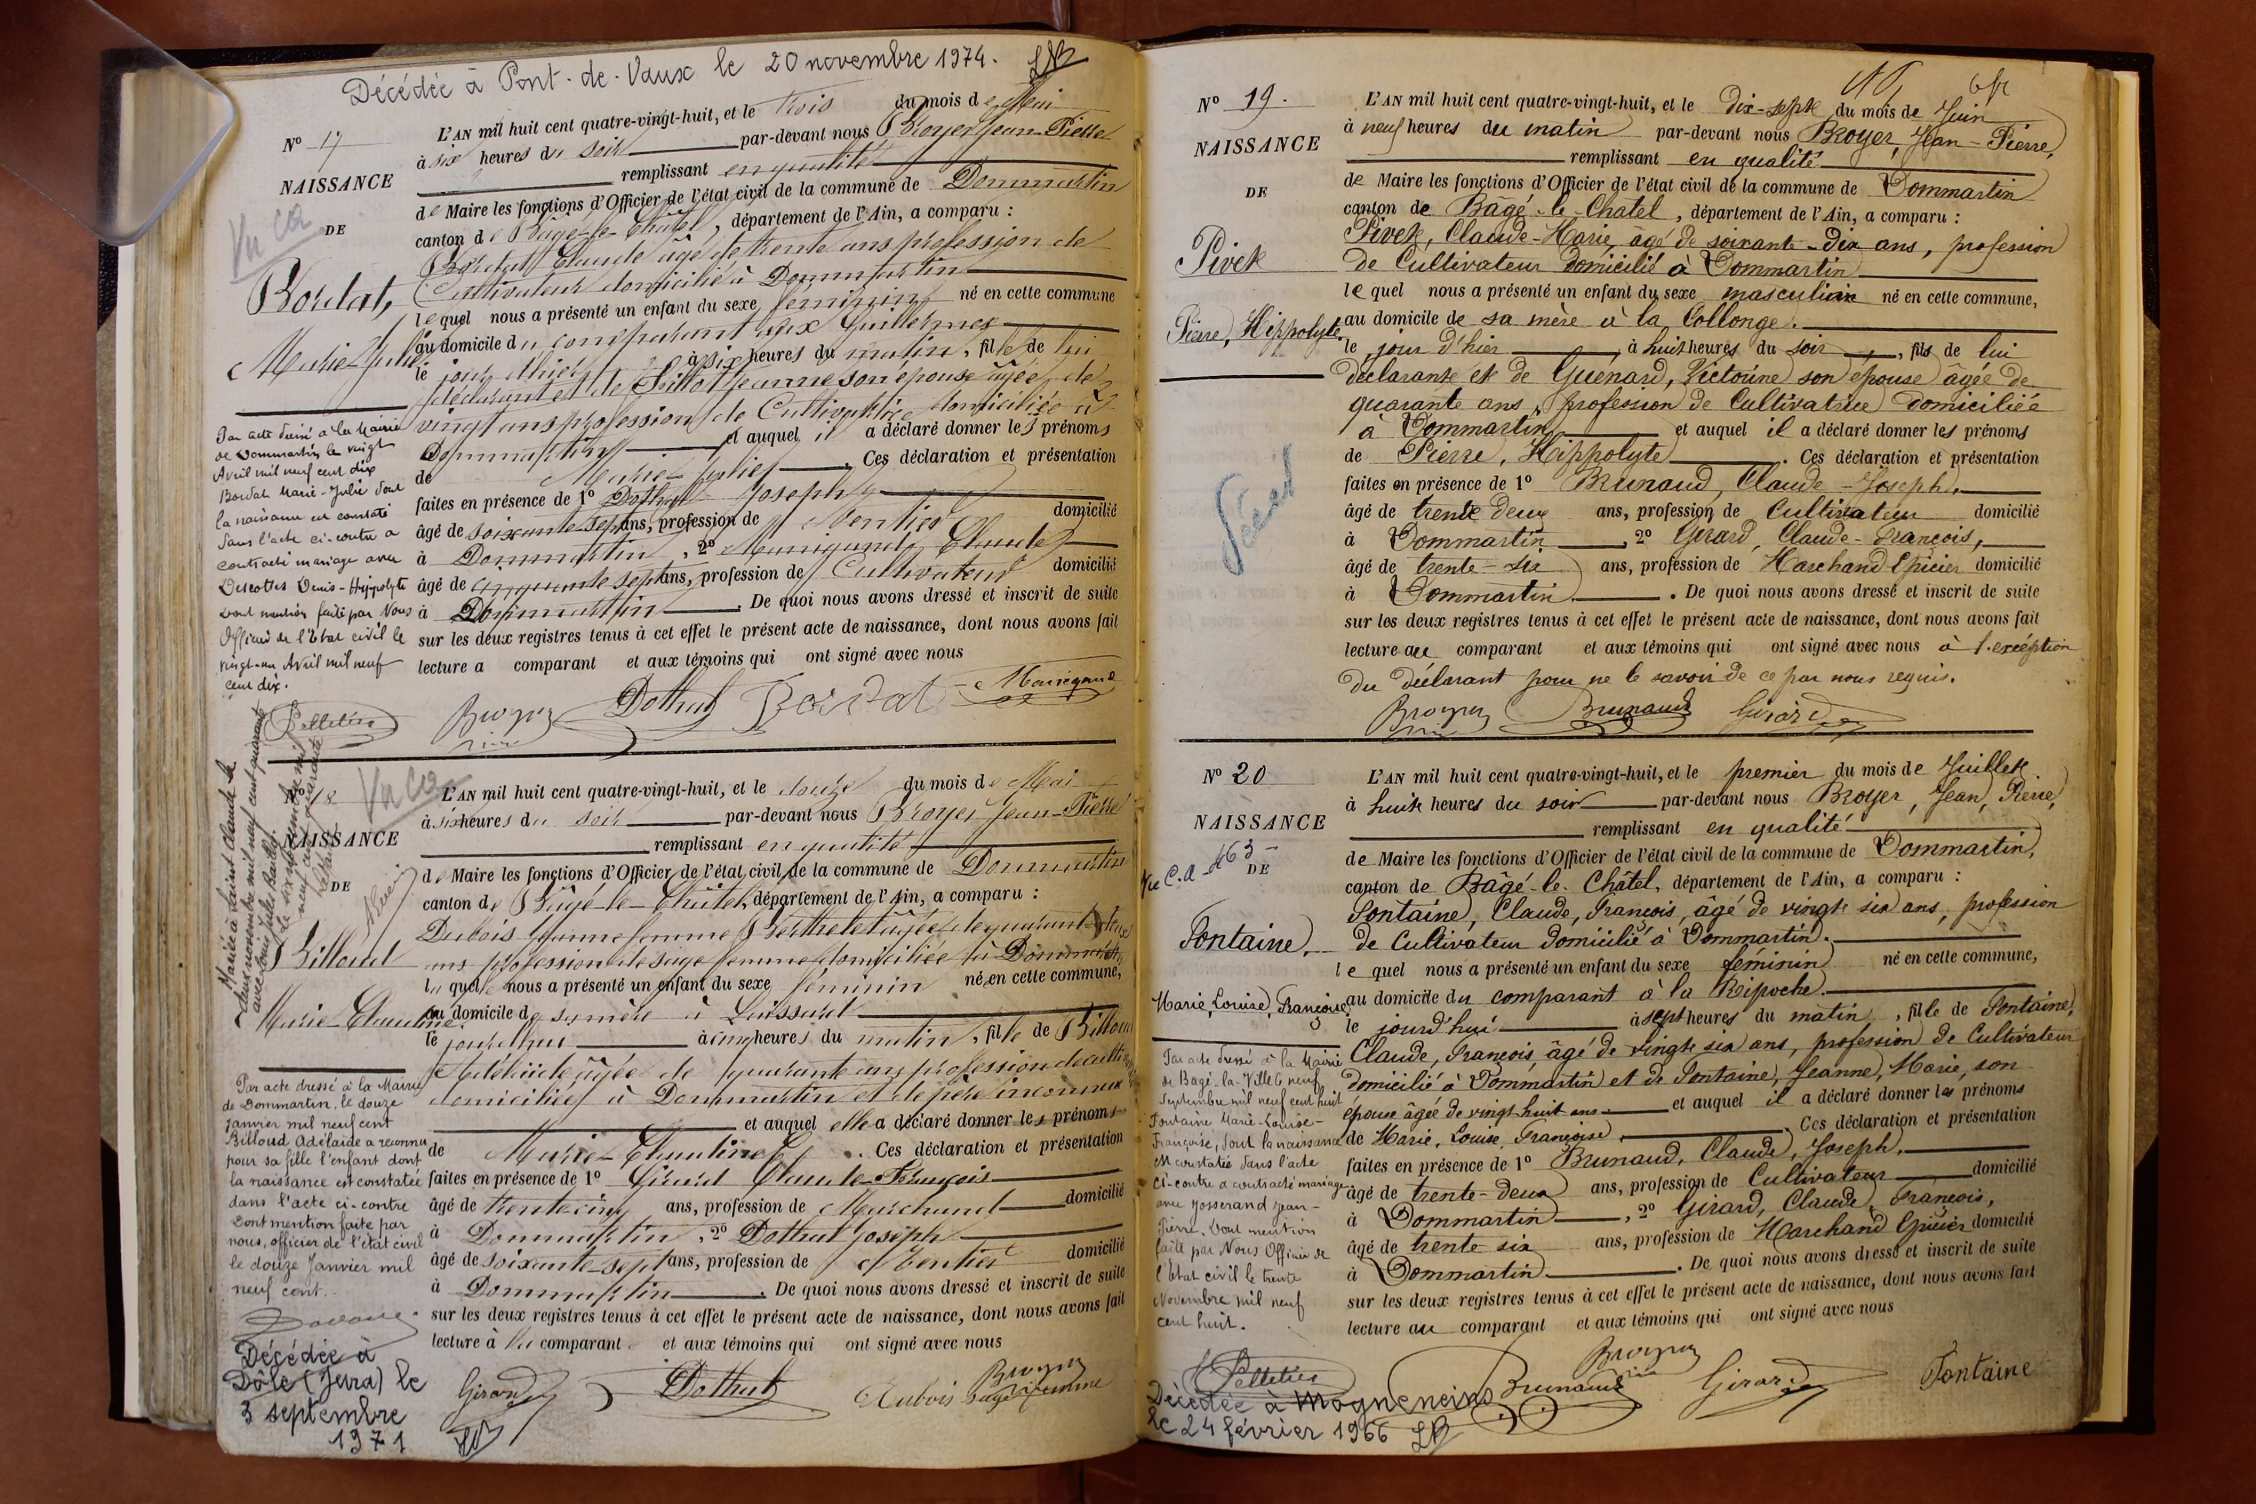 Décédée à Pont-de-Vaux le 20 novembre 1974.
Nº 17
NAISSANCE
DE
Vu CA
Bordat,
Marie-Julie
L'AN mil huit cent quatre-vingt-huit, et le trois du mois de Mai
à six heures du soir par-devant nous Broyer Jean-Pierre
remplissant en qualité
de Maire les fonctions d'Officier de l'état civil de la commune de Dommartin
canton de Bâgé-le-Châtel, département de l'Ain, a comparu :
Bordat Claude âgé de trente ans profession de
Cultivateur domicilié à Dommartin
lequel nous a présenté un enfant du sexe féminin né en cette commune
au domicile du comparant aux Guillermes
le jour d'hier à six heures du matin, fille de lui
déclarant et de Jeanne son épouse âgée de
vingt ans profession de Cultivatrice domiciliée à
Dommartin et auquel il a déclaré donner les prénoms
de Marie-Julie. Ces déclaration et présentation
faites en présence de 1º Dothal Joseph
âgé de soixante-sept ans, profession de Rentier domicilié
à Dommartin, 2º Claude
âgé de cinquante sept ans, profession de Cultivateur domicilié
à Dommartin. De quoi nous avons dressé et inscrit de suite
sur les deux registres tenus à cet effet le présent acte de naissance, dont nous avons fait
lecture a comparant et aux témoins qui ont signé avec nous
Broyer Dothal Bordat
Par acte dressé à la Mairie
de Dommartin le vingt
Avril mil neuf cent dix
Bordat Marie-Julie dont
la naissance est constatée
dans l'acte ci-contre a
contracté mariage avec
Denis-Hippolyte
Dont mention faite par Nous
Officier de l'Etat civil le
vingt-un Avril mil neuf
cent dix.
Pelletier
Nº 18
NAISSANCE
DE
Vu CA
Billoud
Marie-Claudine
L'AN mil huit cent quatre-vingt-huit, et le douze du mois de Mai
à six heures du soir par-devant nous Broyer Jean-Pierre
remplissant en qualité
de Maire les fonctions d'Officier de l'état civil de la commune de Dommartin
canton de Bâgé-le-Châtel, département de l'Ain, a comparu :
Dubois Jeanne femme Berthelet âgée de quarante deux
ans profession de sage femme domiciliée à Dommartin
laquelle nous a présenté un enfant du sexe féminin né en cette commune,
au domicile de sa mère à Loissard
le jourd'hui à cinq heures du matin, fille de Billoud
Adélaïde âgée de quarante ans profession de
domiciliée à Dommartin et de père inconnu
et auquel elle a déclaré donner les prénoms
de Marie-Claudine. Ces déclaration et présentation
faites en présence de 1º Girard Claude-François
âgé de trente cinq ans, profession de Marchand domicilié
à Dommartin, 2º Dothal Joseph
âgé de soixante-sept ans, profession de Rentier domicilié
à Dommartin. De quoi nous avons dressé et inscrit de suite
sur les deux registres tenus à cet effet le présent acte de naissance, dont nous avons fait
lecture à la comparant et aux témoins qui ont signé avec nous
Girard Dothal Dubois sage femme Broyer
Mariée à Saint Claude le
deux novembre mil neuf cent quarante
avec Louis Jules Bailly.
Le six novembre mil
neuf cent quarante
Par acte dressé à la Mairie
de Dommartin, le douze
janvier mil neuf cent
Billoud Adélaïde a reconnu
pour sa fille l'enfant dont
la naissance est constatée
dans l'acte ci-contre
Dont mention faite par
nous, officier de l'état civil
le douze Janvier mil
neuf cent.
Décédée à
Dôle (Jura) le
3 septembre
1971
Nº 19.
NAISSANCE
DE
Pivet
Pierre, Hippolyte.
Décédé
L'AN mil huit cent quatre-vingt-huit, et le dix-sept du mois de Juin
à neuf heures du matin par-devant nous Broyer, Jean-Pierre,
remplissant en qualité
de Maire les fonctions d'Officier de l'état civil de la commune de Dommartin
canton de Bâgé-le-Chatel, département de l'Ain, a comparu :
Pivet, Claude-Marie, âgé de soixante-dix ans, profession
de Cultivateur domicilié à Dommartin
lequel nous a présenté un enfant du sexe masculin né en cette commune,
au domicile de sa mère à la Collonge.
le jour d'hier à huit heures du soir, fils de lui
déclarant et de Guenard, Victorine son épouse âgée de
quarante ans, profession de Cultivatrice domiciliée
à Dommartin et auquel il a déclaré donner les prénoms
de Pierre, Hippolyte. Ces déclaration et présentation
faites en présence de 1º Brunaud, Claude-Joseph,
âgé de trente deux ans, profession de Cultivateur domicilié
à Dommartin, 2º Girard, Claude-François,
âgé de trente-six ans, profession de Marchand Epicier domicilié
à Dommartin. De quoi nous avons dressé et inscrit de suite
sur les deux registres tenus à cet effet le présent acte de naissance, dont nous avons fait
lecture au comparant et aux témoins qui ont signé avec nous à l'exception
du déclarant pour ne le savoir de ce par nous requis.
Broyer Brunaud Girard
Nº 20
NAISSANCE
DE
Vu C.A 463
Fontaine,
Marie, Louise, Françoise,
L'AN mil huit cent quatre-vingt-huit, et le premier du mois de Juillet
à huit heures du soir par-devant nous Broyer, Jean, Pierre,
remplissant en qualité
de Maire les fonctions d'Officier de l'état civil de la commune de Dommartin,
canton de Bâgé-le-Châtel, département de l'Ain, a comparu :
Fontaine, Claude, François, âgé de vingt six ans, profession
de Cultivateur domicilié à Dommartin.
lequel nous a présenté un enfant du sexe féminin né en cette commune,
au domicile du comparant à la Ripoche.
le jourd'hui à sept heures du matin, fille de Fontaine,
Claude, François, âgé de vingt six ans, profession de Cultivateur
domicilié à Dommartin et de Fontaine, Jeanne, Marie, son
épouse âgée de vingt huit ans et auquel il a déclaré donner les prénoms
de Marie, Louise, Françoise. Ces déclaration et présentation
faites en présence de 1º Brunaud, Claude, Joseph,
âgé de trente-deux ans, profession de Cultivateur domicilié
à Dommartin, 2º Girard, Claude, François,
âgé de trente six ans, profession de Marchand Epicier domicilié
à Dommartin. De quoi nous avons dressé et inscrit de suite
sur les deux registres tenus à cet effet le présent acte de naissance, dont nous avons fait
lecture au comparant et aux témoins qui ont signé avec nous
Broyer Brunaud Girard Fontaine
Par acte dressé à la Mairie
de Bagé-la-Ville neuf
Septembre mil neuf cent huit
Fontaine Marie-Louise-
Françoise, dont la naissance
est constatée dans l'acte
ci-contre a contracté mariage
avec Josserand Jean-
Pierre. Dont mention
faite par Nous Officier de
l'Etat civil le trente
Novembre mil neuf
cent huit.
Pelletier
Décédée à Mogneneins
le 24 février 1966